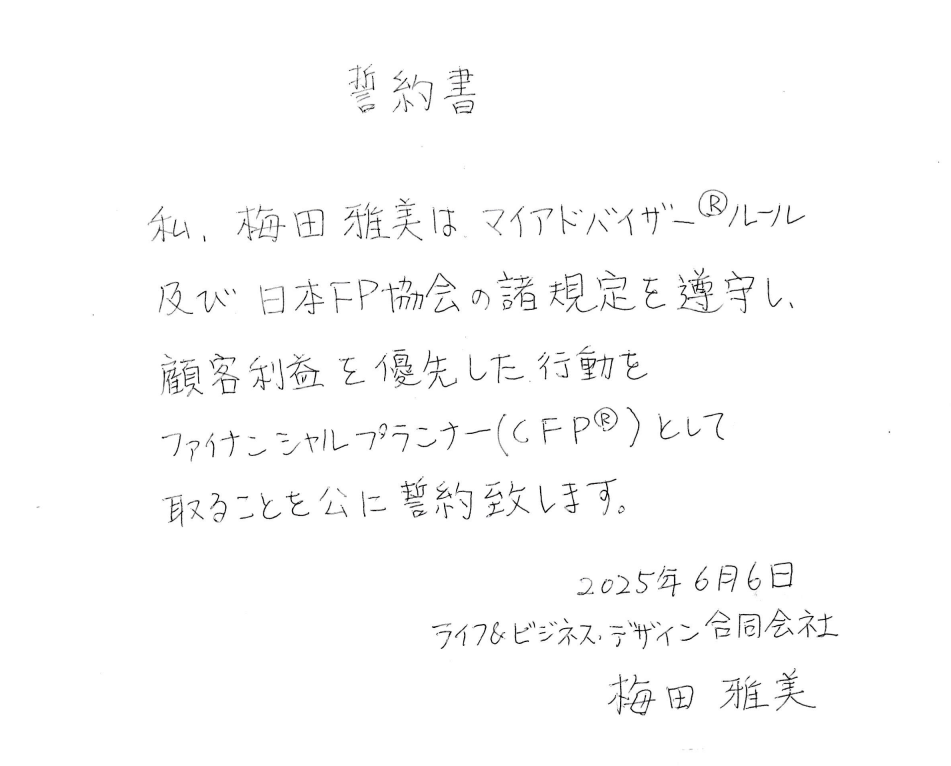 誓約書
私、梅田 雅美は マイアドバイザー®ルール
及び 日本FP協会の諸規定を遵守し、
顧客利益を優先した行動を
ファイナンシャルプランナー(CFP®)として
取ることを公に誓約致します。
2025年6月6日
ライフ&ビジネス・デザイン合同会社
梅田 雅美